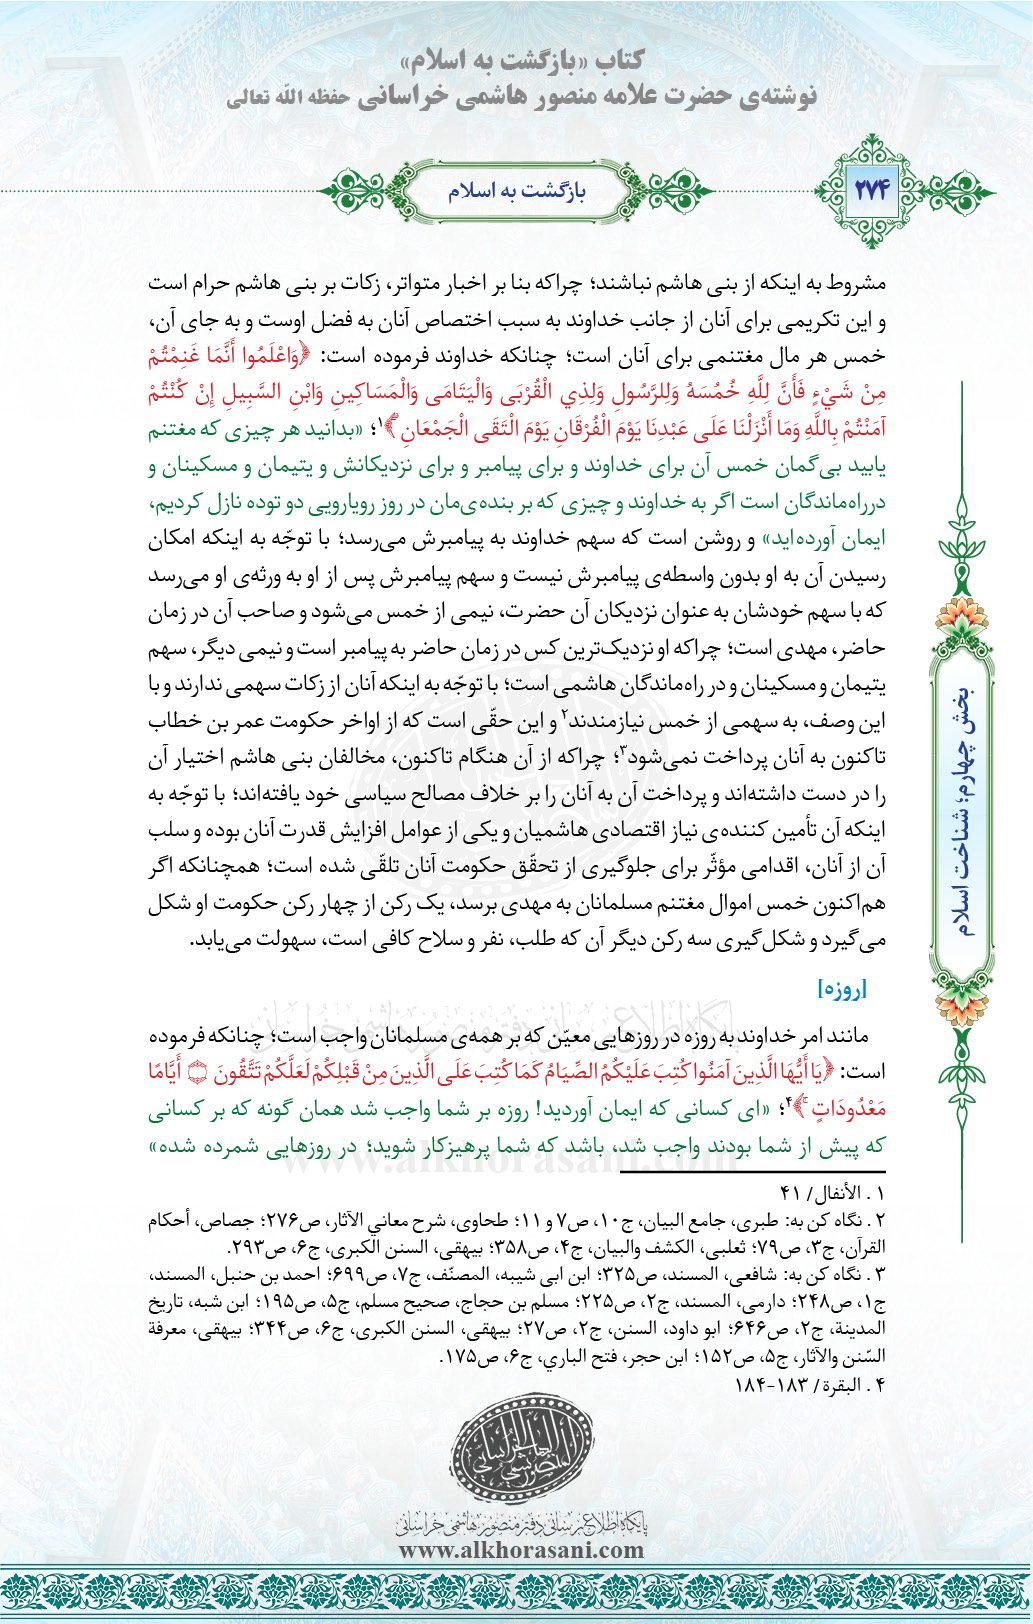 کتاب «بازگشت به اسلام»
نوشته‌ی حضرت علامه منصور هاشمی خراسانی حفظه الله تعالی
۲۷۴
بازگشت به اسلام
مشروط به اینکه از بنی هاشم نباشند؛ چراکه بنا بر اخبار متواتر، زکات بر بنی هاشم حرام است
و این تکریمی برای آنان از جانب خداوند به سبب اختصاص آنان به فضل اوست و به جای آن،
خمس هر مال مغتنمی برای آنان است؛ چنانکه خداوند فرموده است: ﴿وَاعْلَمُوا أَنَّمَا غَنِمْتُمْ
مِنْ شَيْءٍ فَأَنَّ لِلَّهِ خُمُسَهُ وَلِلرَّسُولِ وَلِذِي الْقُرْبَى وَالْيَتَامَى وَالْمَسَاكِينِ وَابْنِ السَّبِيلِ إِنْ كُنْتُمْ
آمَنْتُمْ بِاللَّهِ وَمَا أَنْزَلْنَا عَلَى عَبْدِنَا يَوْمَ الْفُرْقَانِ يَوْمَ الْتَقَى الْجَمْعَانِ ۗ﴾۱؛ «بدانید هر چیزی که مغتنم
یابید بی‌گمان خمس آن برای خداوند و برای پیامبر و برای نزدیکانش و یتیمان و مسکینان و
درراه‌ماندگان است اگر به خداوند و چیزی که بر بنده‌ی‌مان در روز رویارویی دو توده نازل کردیم،
ایمان آورده‌اید» و روشن است که سهم خداوند به پیامبرش می‌رسد؛ با توجّه به اینکه امکان
رسیدن آن به او بدون واسطه‌ی پیامبرش نیست و سهم پیامبرش پس از او به ورثه‌ی او می‌رسد
که با سهم خودشان به عنوان نزدیکان آن حضرت، نیمی از خمس می‌شود و صاحب آن در زمان
حاضر، مهدی است؛ چراکه او نزدیک‌ترین کس در زمان حاضر به پیامبر است و نیمی دیگر، سهم
یتیمان و مسکینان و در راه‌ماندگان هاشمی است؛ با توجّه به اینکه آنان از زکات سهمی ندارند و با
این وصف، به سهمی از خمس نیازمندند۲ و این حقّی است که از اواخر حکومت عمر بن خطاب
تاکنون به آنان پرداخت نمی‌شود۳؛ چراکه از آن هنگام تاکنون، مخالفان بنی هاشم اختیار آن
را در دست داشته‌اند و پرداخت آن به آنان را بر خلاف مصالح سیاسی خود یافته‌اند؛ با توجّه به
اینکه آن تأمین کننده‌ی نیاز اقتصادی هاشمیان و یکی از عوامل افزایش قدرت آنان بوده و سلب
آن از آنان، اقدامی مؤثّر برای جلوگیری از تحقّق حکومت آنان تلقّی شده است؛ همچنانکه اگر
هم‌اکنون خمس اموال مغتنم مسلمانان به مهدی برسد، یک رکن از چهار رکن حکومت او شکل
می‌گیرد و شکل‌گیری سه رکن دیگر آن که طلب، نفر و سلاح کافی است، سهولت می‌یابد.
[روزه]
مانند امر خداوند به روزه در روزهایی معیّن که بر همه‌ی مسلمانان واجب است؛ چنانکه فرموده
است: ﴿يَا أَيُّهَا الَّذِينَ آمَنُوا كُتِبَ عَلَيْكُمُ الصِّيَامُ كَمَا كُتِبَ عَلَى الَّذِينَ مِنْ قَبْلِكُمْ لَعَلَّكُمْ تَتَّقُونَ ۝ أَيَّامًا
مَعْدُودَاتٍ ۚ﴾۴؛ «ای کسانی که ایمان آوردید! روزه بر شما واجب شد همان گونه که بر کسانی
که پیش از شما بودند واجب شد، باشد که شما پرهیزکار شوید؛ در روزهایی شمرده شده»
۱ . الأنفال/ ۴۱
۲ . نگاه کن به: طبری، جامع البیان، ج۱۰، ص۷ و ۱۱؛ طحاوی، شرح معاني الآثار، ص۲۷۶؛ جصاص، أحکام
القرآن، ج۳، ص۷۹؛ ثعلبی، الکشف والبیان، ج۴، ص۳۵۸؛ بیهقی، السنن الکبری، ج۶، ص۲۹۳.
۳ . نگاه کن به: شافعی، المسند، ص۳۲۵؛ ابن ابی شیبه، المصنّف، ج۷، ص۶۹۹؛ احمد بن حنبل، المسند،
ج۱، ص۲۴۸؛ دارمی، المسند، ج۲، ص۲۲۵؛ مسلم بن حجاج، صحیح مسلم، ج۵، ص۱۹۵؛ ابن شبه، تاریخ
المدینة، ج۲، ص۶۴۶؛ ابو داود، السنن، ج۲، ص۲۷؛ بیهقی، السنن الکبری، ج۶، ص۳۴۴؛ بیهقی، معرفة
السّنن والآثار، ج۵، ص۱۵۲؛ ابن حجر، فتح الباري، ج۶، ص۱۷۵.
۴ . البقرة/ ۱۸۳-۱۸۴
بخش چهارم؛ شناخت اسلام
المنصور الهاشمي الخراساني
پایگاه اطلاع‌رسانی دفتر منصور هاشمی خراسانی
www.alkhorasani.com